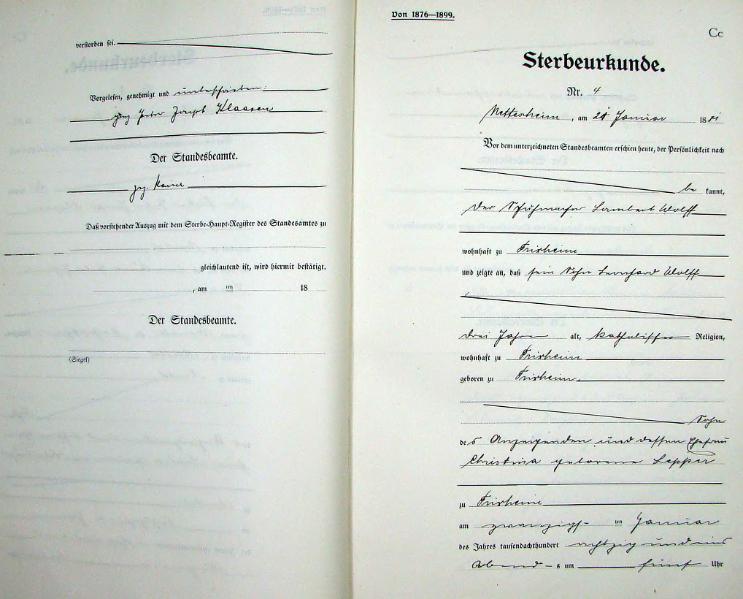 verstorben sei.
Vorgelesen, genehmigt und unterschrieben.
gez. Peter Joseph Klaasen
Der Standesbeamte.
gez.
Daß vorstehender Auszug mit dem Sterbe-Haupt-Register des Standesamtes zu
gleichlautend ist, wird hiermit bestätigt.
, am ten 18
Der Standesbeamte.
(Siegel)
Von 1876—1899.
Cc
Sterbeurkunde.
Nr. 4
, am 21 Januar 1881
Vor dem unterzeichneten Standesbeamten erschien heute, der Persönlichkeit nach
be kannt,
der Schuhmacher Lambert Wolff
wohnhaft zu Frixheim
und zeigte an, daß sein Sohn Leonhard Wolff
drei Jahre alt, katholischer Religion,
wohnhaft zu Frixheim
geboren zu Frixheim
Sohn
des Anzeigenden und dessen Ehefrau
Christina geborene Lepper
zu Frixheim
am zwanzigsten Januar
des Jahres tausendachthundert achtzig und eins
Abend s um fünf Uhr